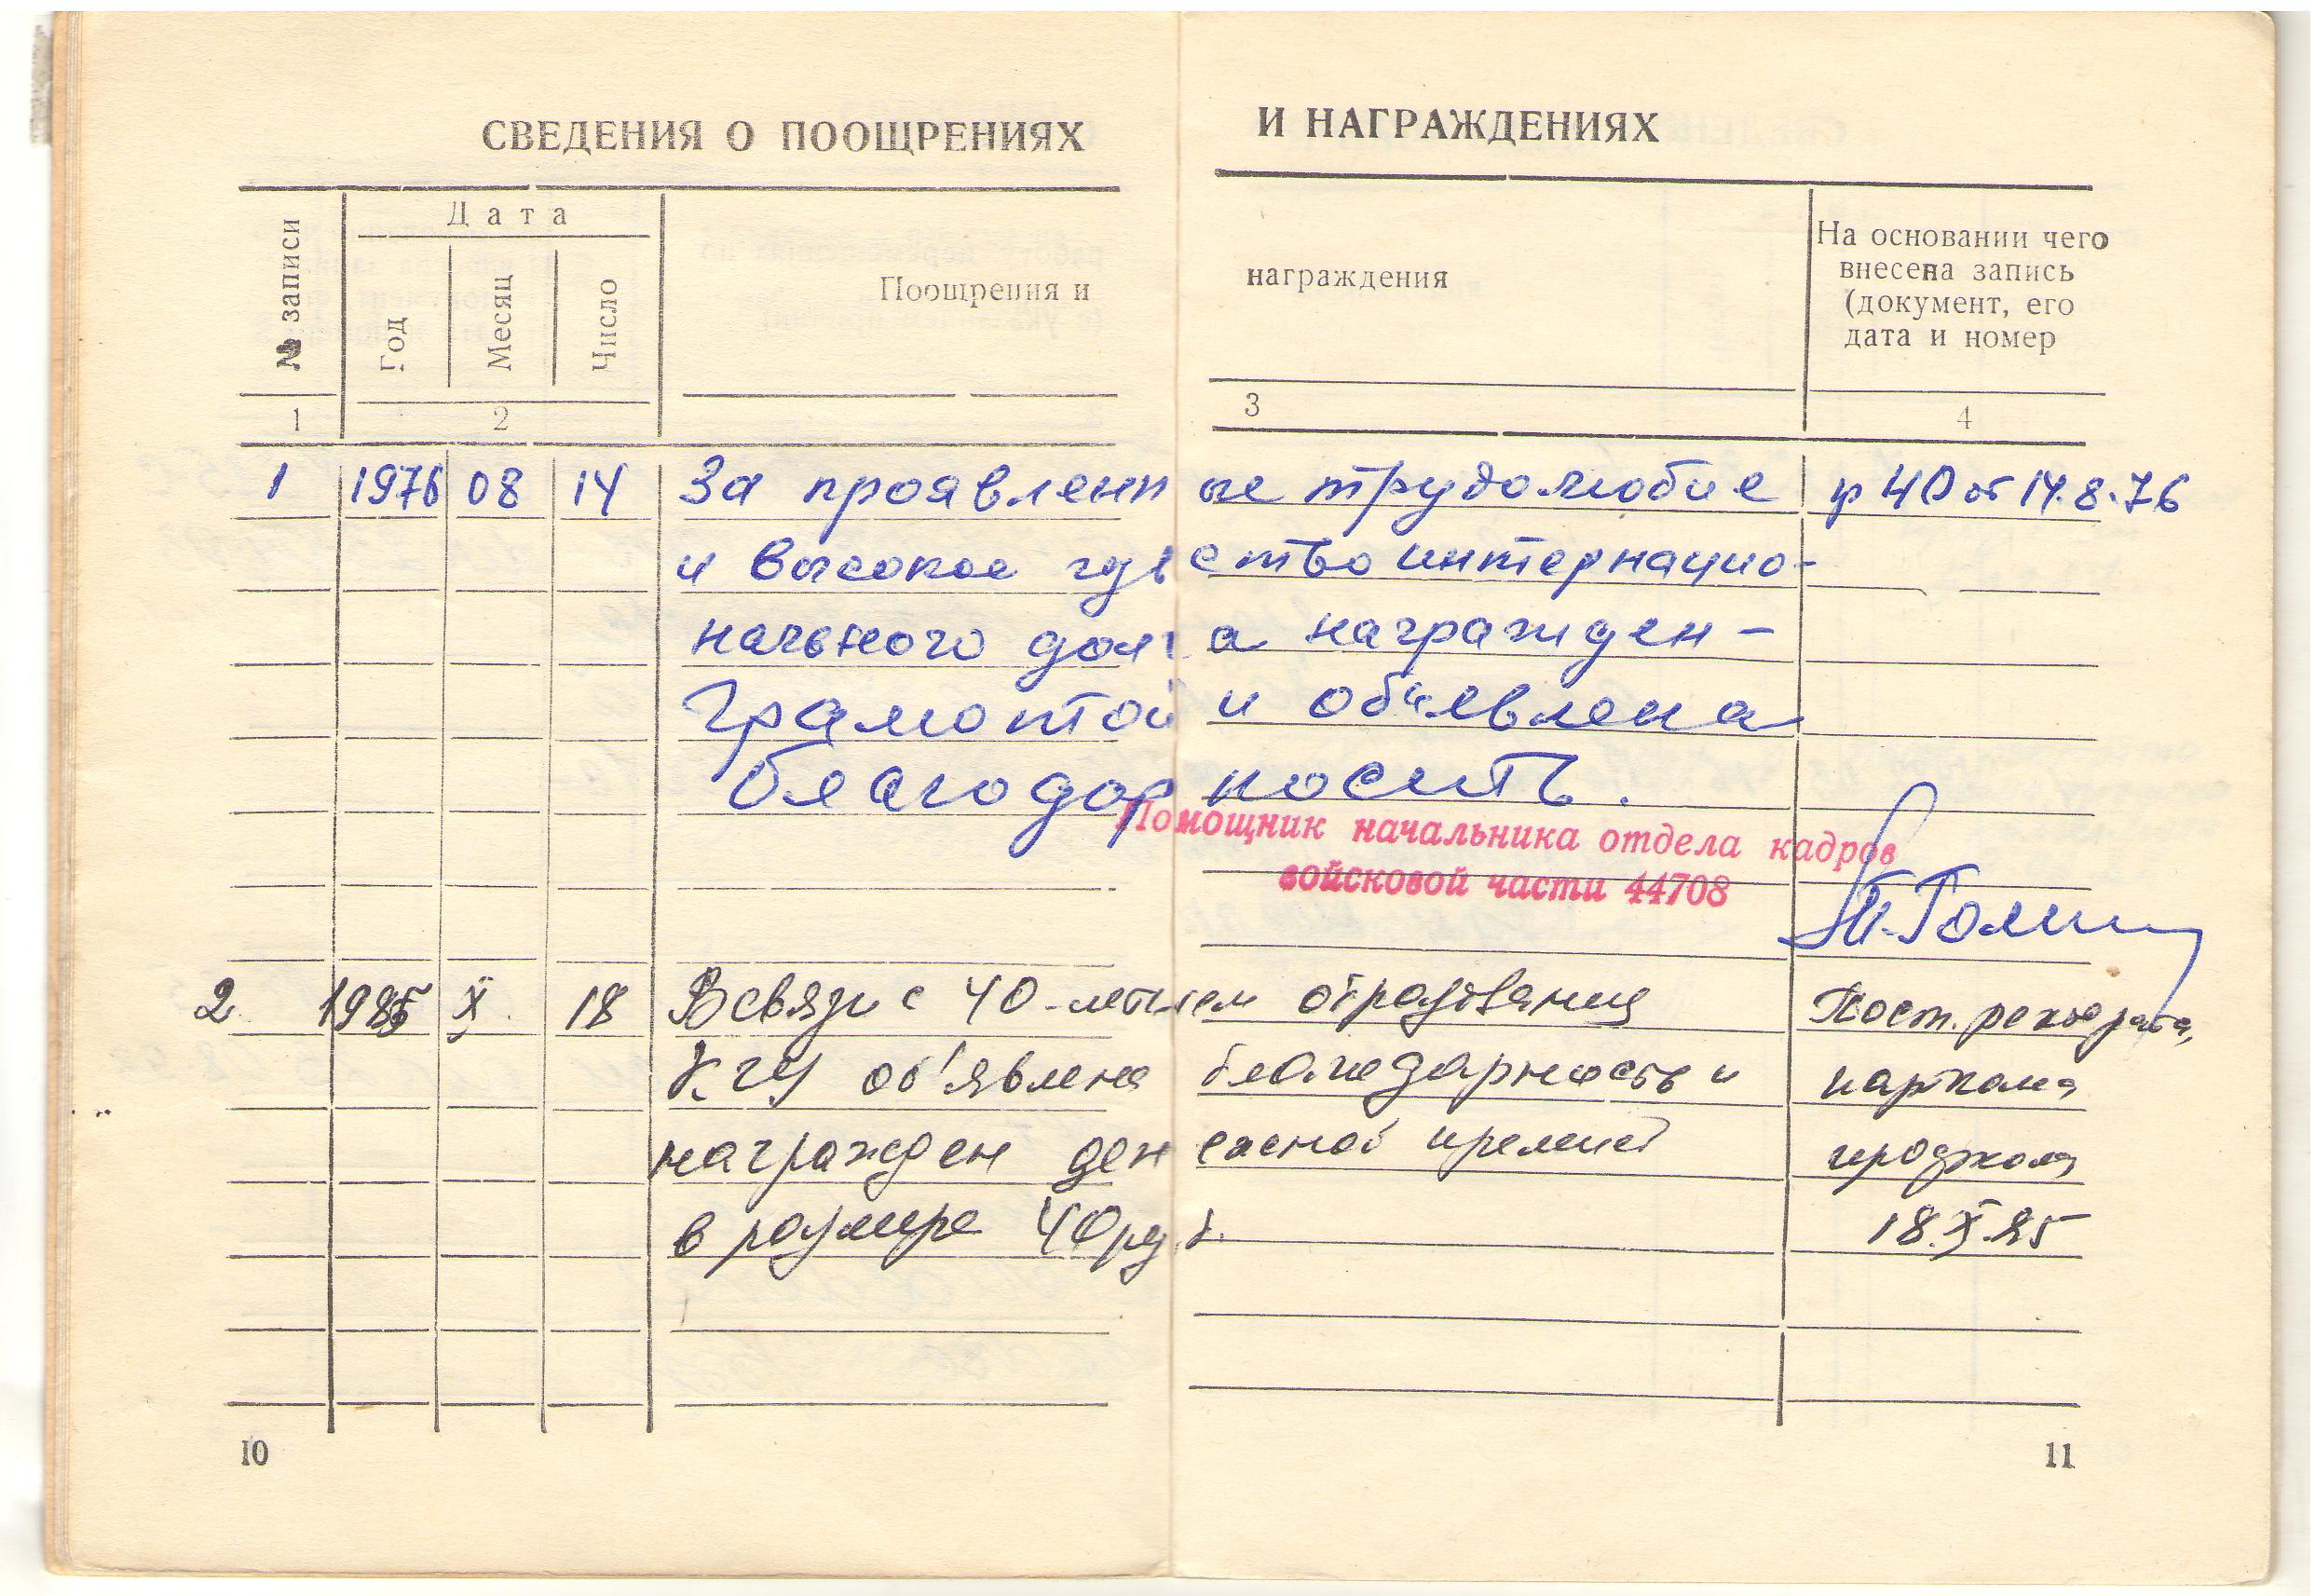 СВЕДЕНИЯ О ПООЩРЕНИЯХ И НАГРАЖДЕНИЯХ
№ записи
Дата
Год
Месяц
Число
Поощрения и награждения
На основании чего
внесена запись
(документ, его
дата и номер
1 2 3 4
1 1976 08 14 За проявленные трудолюбие пр 40 от 14.8.76
и высокое чувство интернацио-
нального долга награжден-
грамотой и объявлена
благодарность.
Помощник начальника отдела кадров
войсковой части 44708
2 1985 X 18 В связи с 40-летием образования Пост. ректората,
КГУ об'явлена благодарность и парткома,
награжден денежной премией профкома
в размере 40 руб. 18.X.85
10
11